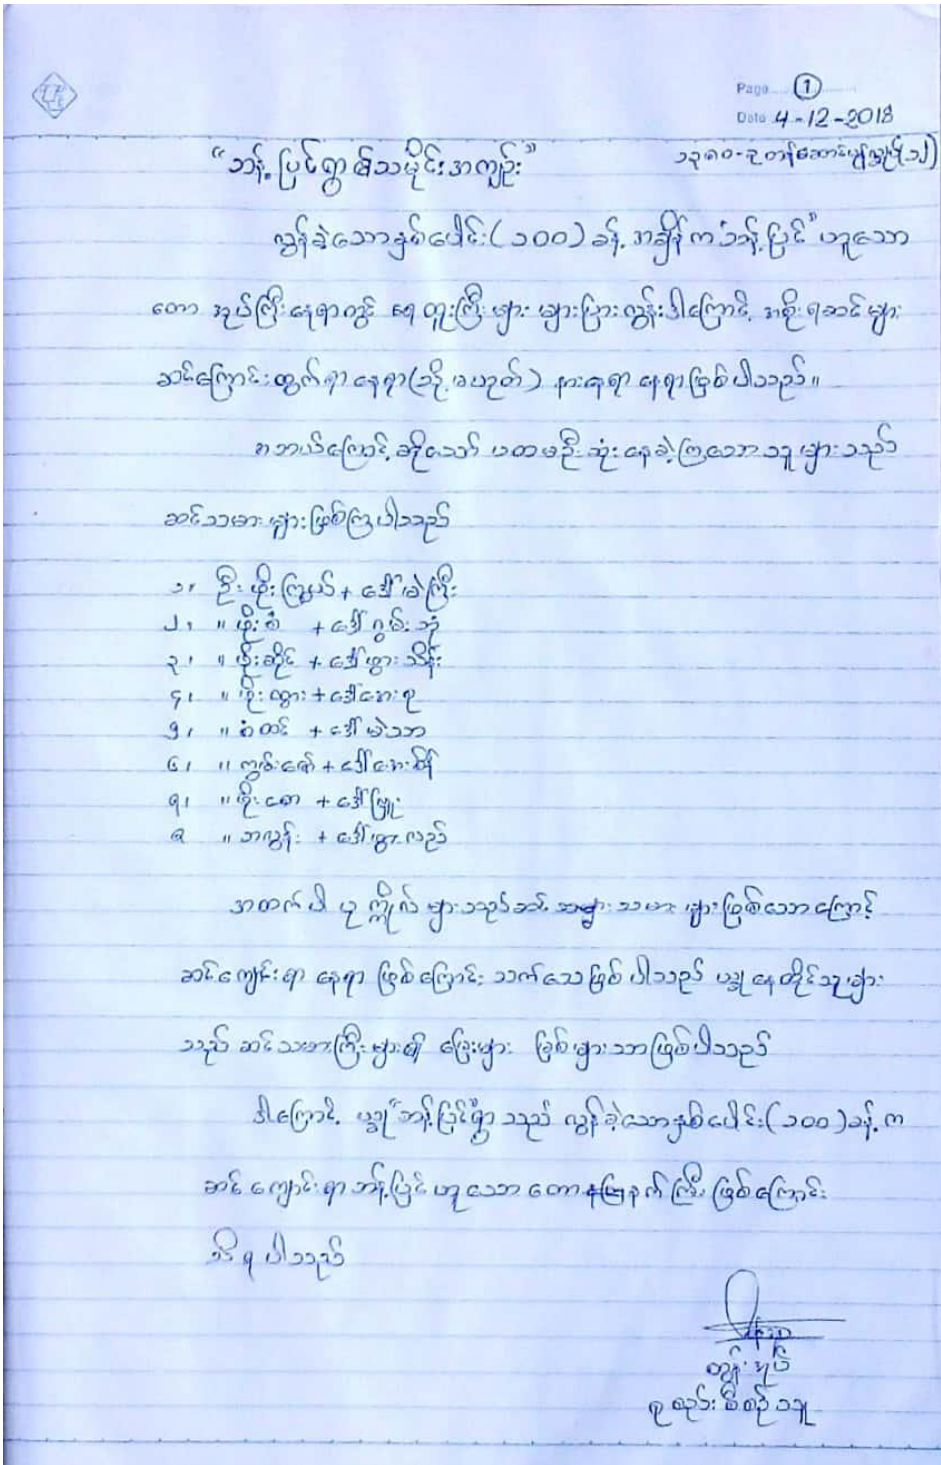 Page 1
Date 4-12-2018
၁၃၈၀-ခု တန်ဆောင်မုန်း
"ဘန့်ပြင်ရွာ၏သမိုင်းအကျဉ်း"
လွန်ခဲ့သောနှစ်ပေါင်း(၁၀၀)ခန့်အချိန်က "ဘန့်ပြင်" ဟူသော
တော အုပ်ကြီးနေရာတွင် ရေတူးကြီးများ များပြားလွန်းဒါကြောင့် အစိုးရဆင်များ
ဆင်ကြောင်းထွက်ရာနေရာ(သို့မဟုတ်) နားနေရာ နေရာဖြစ်ပါသည်။
စာဘယ်ကြောင့်ဆိုသော် ပထမဦးဆုံးနေခဲ့ကြသောသူများသည်
ဆင်သမားများဖြစ်ကြပါသည်
၁၊ ဦးဖိုးကြွယ် + ဒေါ်မဲကြီး
၂၊ " ဖိုးစံ + ဒေါ်ဂွမ်းဘုံ
၃၊ " ဖိုးဆိုင် + ဒေါ်ဖွားသိန်း
၄၊ " ဖိုးထွား + ဒေါ်အေးစု
၅၊ " စံတင် + ဒေါ်မဲသာ
၆၊ " ကျွန်းဇော် + ဒေါ်အေးစိန်
၇၊ " ဖိုးဇော + ဒေါ်ဖြူ
၈ " ဘလွန်း + ဒေါ်ဖွားလည်
အထက်ပါ ပုဂ္ဂိုလ်များသည်ဆင် သမားများဖြစ်သောကြောင့်
ဆင်ကျောင်းရာ နေရာ ဖြစ်ကြောင်း သက်သေဖြစ်ပါသည် ယခုနေထိုင်သူများ
သည် ဆင်သမားကြီးများ၏ မြေးများ မြစ်များသာဖြစ်ပါသည်
ဒါကြောင့် ယခု"ဘန့်ပြင်ရွာ သည် လွန်ခဲ့သောနှစ်ပေါင်း(၁၀၀)ခန့်က
ဆင်ကျောင်းရာဘန့်ပြင်ဟူသော တော နက်ကြီး ဖြစ်ကြောင်း
သိရပါသည်
ထွန်းအုပ်
စုစည်းစီစဉ်သူ